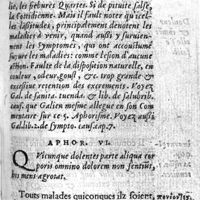 lie, les fiebures Quartes. Si de pituite salse,
la Cotidienne. Mais il fault noter que icel-
les lassitudes principalement denotent les
maladies à venir, quand aussi y suruien-
nent les symptomes, qui ont accoustumé
suyure les malades: comme lesion d'aucune
action. Faulte de la disposition naturelle, en
couleur, odeur, goust, &c. trop grande &
excessiue retention des excrements. Voyez
Gal. de sanita. tuenda. & lib. de salubrib.
caus. que Galien mesme allegue en son Com
mentaire sur ce 5. Aphorisme. Voyez aussi
Gal. lib. 2. de sympto. caus. cap. 7.
APHOR. VI.
Quicunque dolentes parte aliqua cor
poris omnino dolorem non sentiũt,
iis mens ægrotat.
Touts malades quiconques ilz soient,